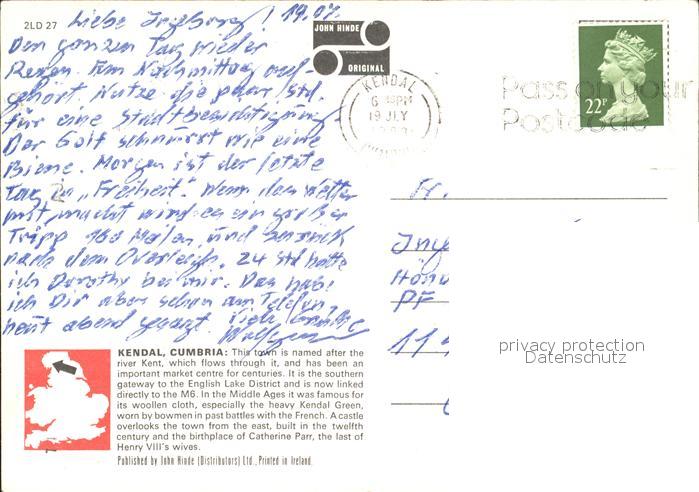 2LD 27
Liebe Ingeborg! 19.07.
Den ganzen Tag wieder
Regen. Am Nachmittag auf-
gehört. Nutze die paar Std.
für eine Stadtbesichtigung
Der Golf schnurrt wie eine
Biene. Morgen ist der letzte
Tag in „Freiheit". Wenn das Wetter
mit macht wird es ein großer
Tripp 160 Meilen und zurück
nach dem 24 Std hatte
ich Dorothy bei mir. Das habe
ich Dir aber schon am Telefon
heut abend gesagt. Viele Grüße
Wolfgang
JOHN HINDE
ORIGINAL
KENDAL
6 PM
19 JLY
CUMBRIA
Pass on your
Postcode
22P
Fr.
Inge
PF
11
privacy protection
Datenschutz
KENDAL, CUMBRIA: This town is named after the
river Kent, which flows through it, and has been an
important market centre for centuries. It is the southern
gateway to the English Lake District and is now linked
directly to the M6. In the Middle Ages it was famous for
its woollen cloth, especially the heavy Kendal Green,
worn by bowmen in past battles with the French. A castle
overlooks the town from the east, built in the twelfth
century and the birthplace of Catherine Parr, the last of
Henry VIII's wives.
Published by John Hinde (Distributors) Ltd., Printed in Ireland.